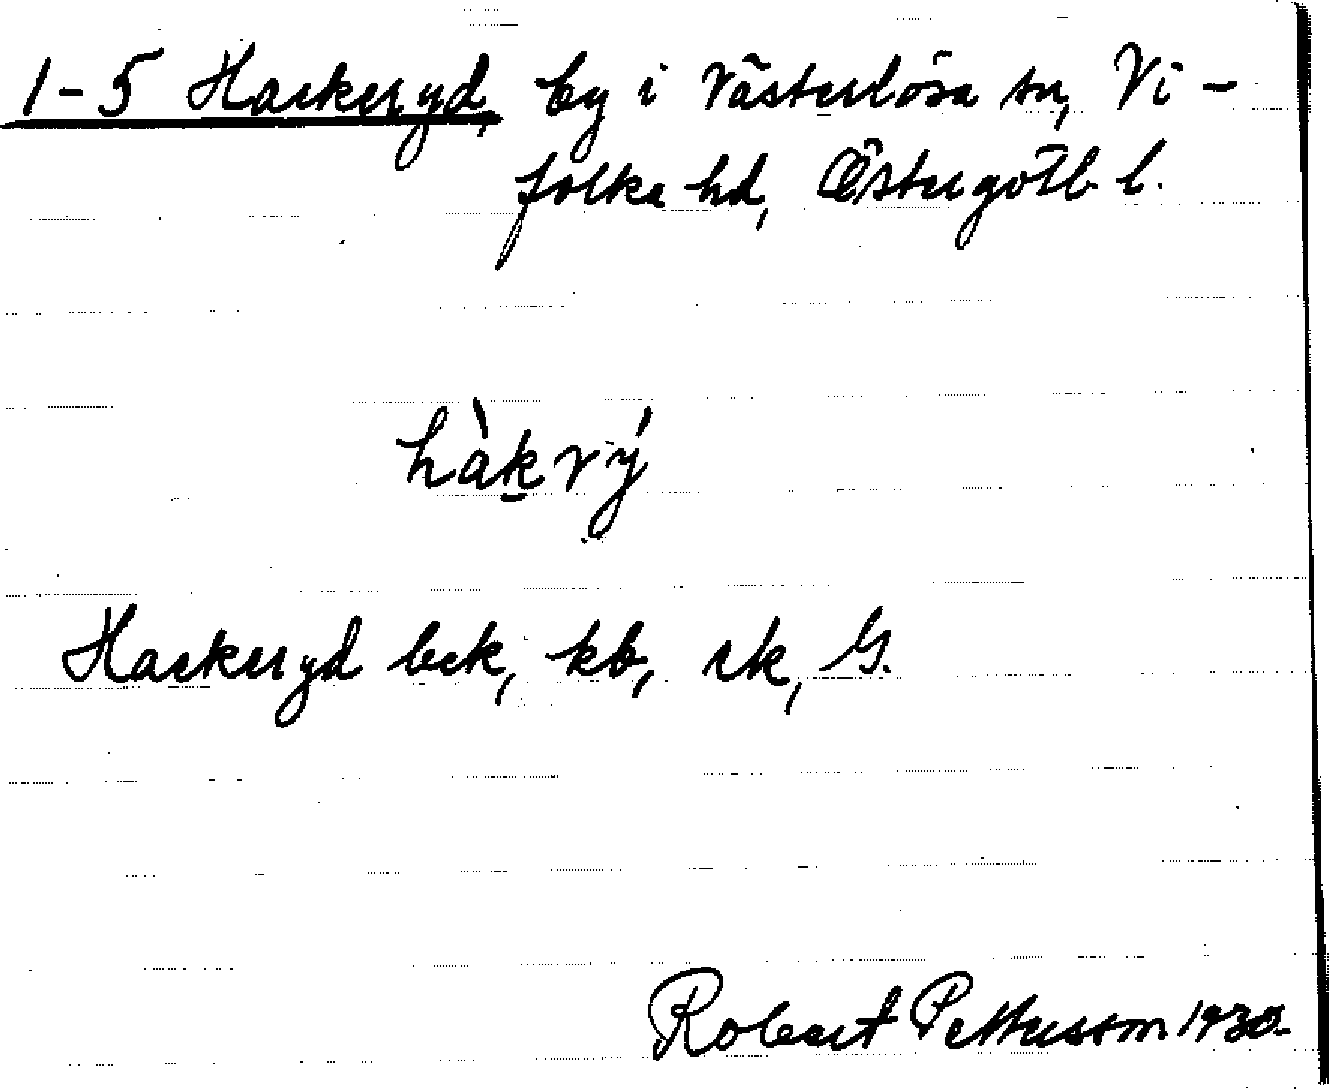 1-5 Hackeryd, by i Västerlösa sn, Vi-
folka hd, Östergötl. l.
hàkrý
Hackeryd bek, kb, rk, G.
Robert Pettersson 1930.